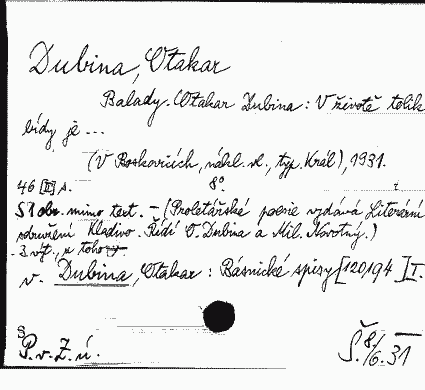 Dubina, Otakar
Balady. Otakar Dubina: V životě tolik
bídy je ...
(V Boskovicích, nákl. vl., typ. Král), 1931.
46 [II] s. 8°.
S 1 obr. mimo text. - (Proletářské poesie vydává Literární
sdružení Kladivo. Řídí O. Dubina a Mil. Novotný.)
v. Dubina, Otakar: Básnické spisy [120,194 ] I.
P. v. Z. ú. Š. 8/6. 31